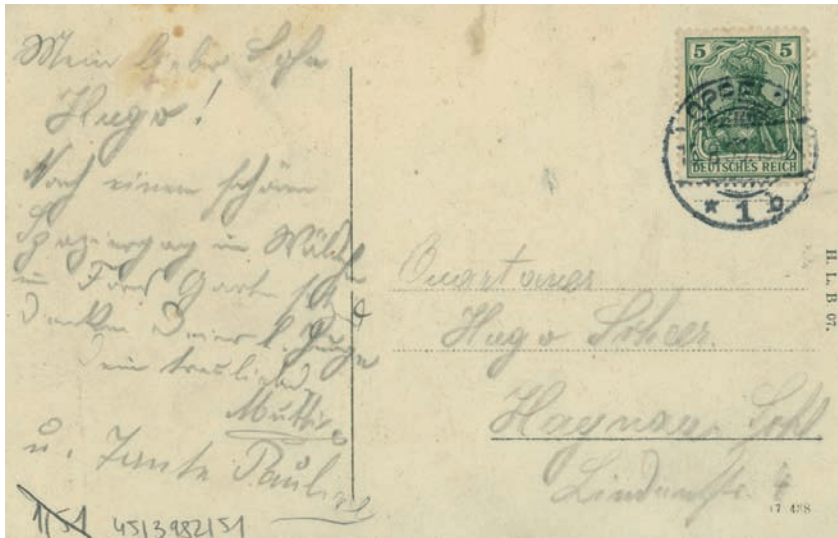 Mein lieber Sohn
Hugo!
Nach einem schönen
Spaziergang im Wäldchen
in Garten
Deiner l.
Dein treuliebd.
Mutti
u. Tante Pauline
1/51 45/3982/51
5 5
DEUTSCHES REICH
OPPELN
* 1 b
Quartaner
Hugo Scheer.
Haynau Schl
Lindenstr. 4
H. L. B 01.
17 488